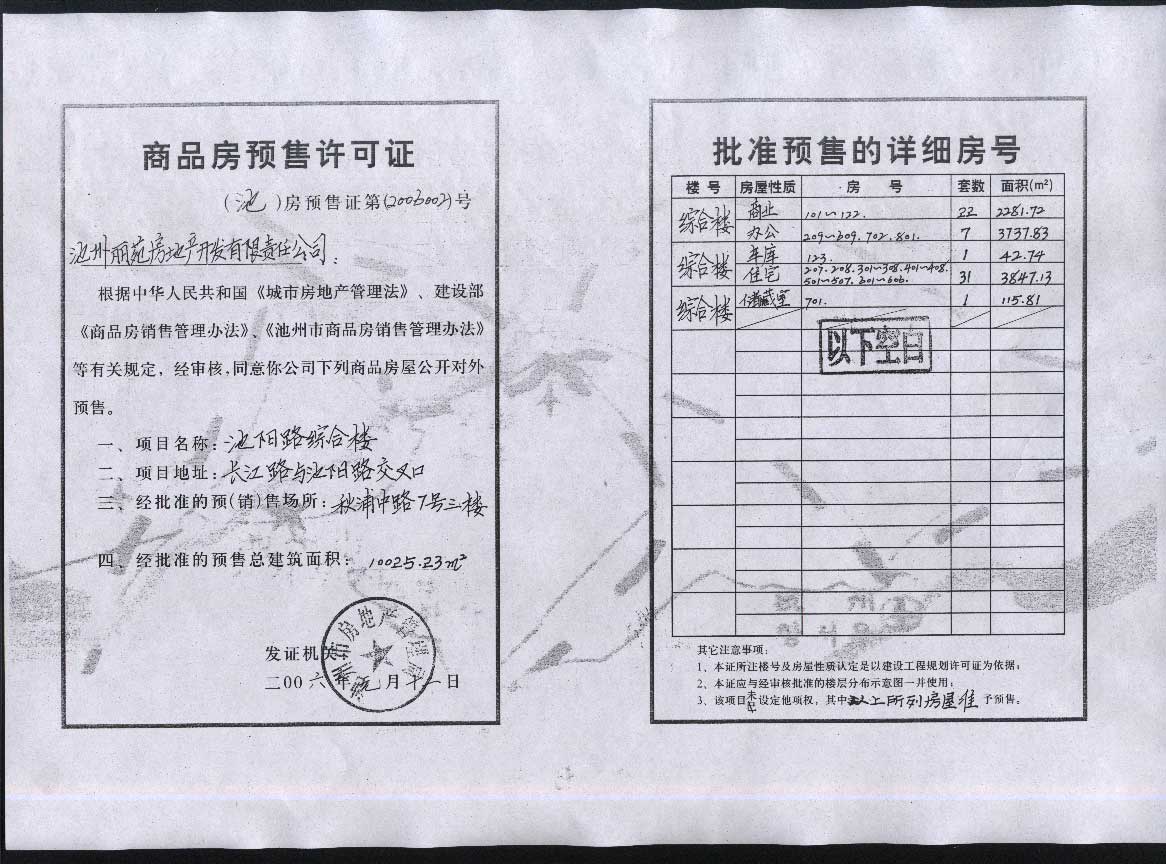 商品房预售许可证
(池)房预售证第(2006002)号
池州丽苑房地产开发有限责任公司：
根据中华人民共和国《城市房地产管理法》、建设部
《商品房销售管理办法》、《池州市商品房销售管理办法》
等有关规定，经审核，同意你公司下列商品房屋公开对外
预售。
一、项目名称：池阳路综合楼
二、项目地址：长江路与池阳路交叉口
三、经批准的预(销)售场所：秋浦中路7号三楼
四、经批准的预售总建筑面积：10025.23m²
发证机关：
池州市房地产管理局
二00六年元月十一日
批准预售的详细房号
楼号 房屋性质 房号 套数 面积(m²)
综合楼 商业 101～122. 22 2281.72
办公 209～609.702.801. 7 3737.83
综合楼 车库 123. 1 42.74
住宅 207.208.301～308.401～408. 501～507.601～606. 31 3847.13
综合楼 储藏室 701. 1 115.81
以下空白
其它注意事项：
1、本证所注楼号及房屋性质认定是以建设工程规划许可证为依据；
2、本证应与经审核批准的楼层分布示意图一并使用；
3、该项目未设定他项权，其中以上所列房屋准予预售。